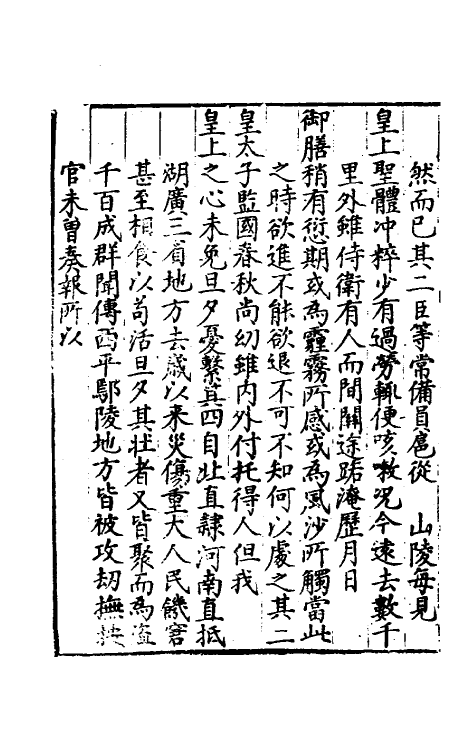 然而已其二臣等常備員扈從　山陵每見
皇上聖體冲粹少有過勞輒便咳嗽况今遠去數千
里外雖侍衛有人而間關途踏淹歷月日
御膳稍有愆期或為霾霧所感或為風沙所觸當此
之時欲進不能欲退不可不知何以處之其二
皇太子監國春秋尚幼雖内外付托得人但我
皇上之心未免旦夕憂繫其四自北直隷河南直抵
湖廣三省地方去歲以來災傷重大人民饑窘
甚至相食以苟活旦夕其壯者又皆聚而為盜
千百成群聞傳西平鄢陵地方皆被攻刼撫
官未曾奏報所以